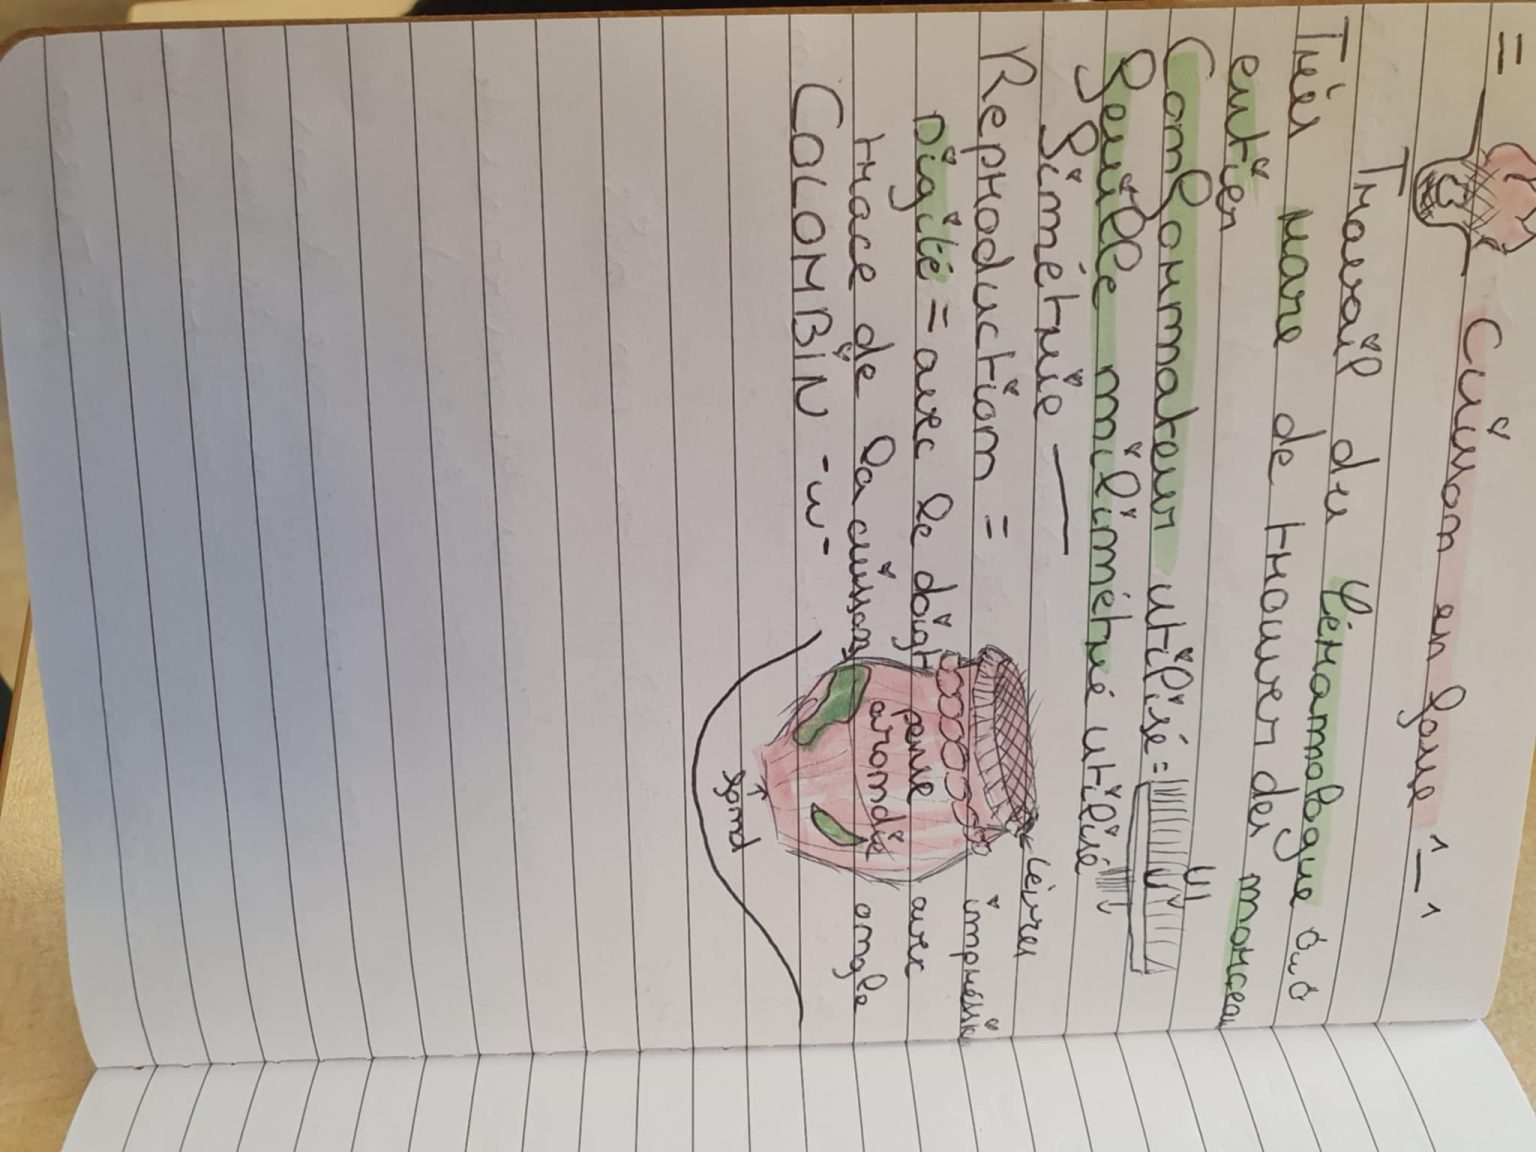 = Cuisson en fosse ^_^
Travail du Céramologue ÒuÓ
Très rare de trouver des morceau
entier
Conformateur utilisé =
feuille milimétré utilisé
Simétrie —
Reproduction =
Digité = avec le doigt
trace de la cuisson
COLOMBiN -u-
Lèvres
impression
avec
ongle
panse
arrondie
fond